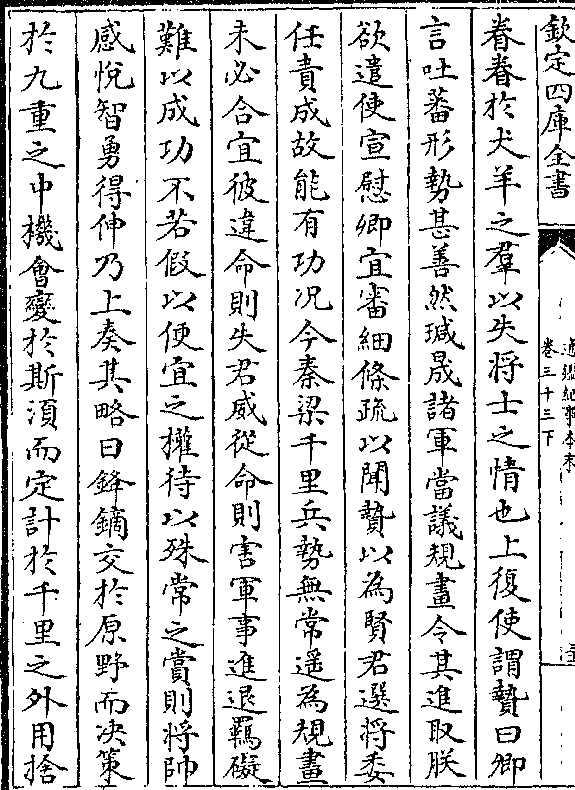 欽定四庫全書
通鑑紀事本末
卷三十三下
眷眷於犬羊之羣以失將士之情也上復使謂贄曰卿
言吐蕃形勢甚善然瑊晟諸軍當議規畫令其進取朕
欲遣使宣慰卿宜審細條疏以聞贄以為賢君選將委
任責成故能有功况今秦梁千里兵勢無常遥為規畫
未必合宜彼違命則失君威從命則害軍事進退羈礙
難以成功不若假以便宜之權待以殊常之賞則將帥
感悅智勇得伸乃上奏其略曰鋒鏑交於原野而决策
於九重之中機會變於斯須而定計於千里之外用捨